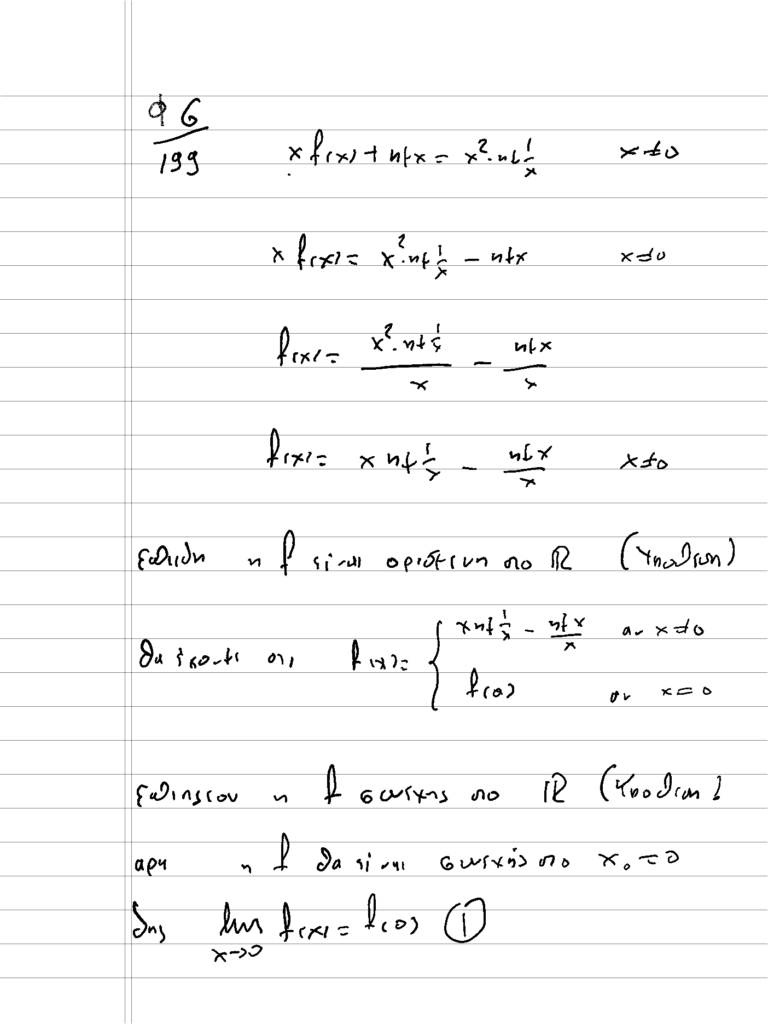 Φ 6
199
x f(x) + ημx = x²·ημ 1/x x≠0
x f(x) = x²·ημ 1/x - ημx x≠0
f(x) = x²·ημ 1/x / x - ημx / x
f(x) = x ημ 1/x - ημx / x x≠0
Επειδη η f ειναι ορισμενη στο ℝ (Υποθεση)
θα εχουμε οτι f(x) = { xημ 1/x - ημx / x αν x≠0
f(0) αν x=0
Επιπλεον η f συνεχης στο ℝ (Υποθεση)
αρα η f θα ειναι συνεχής στο x₀=0
δης lim x→0 f(x) = f(0) ①